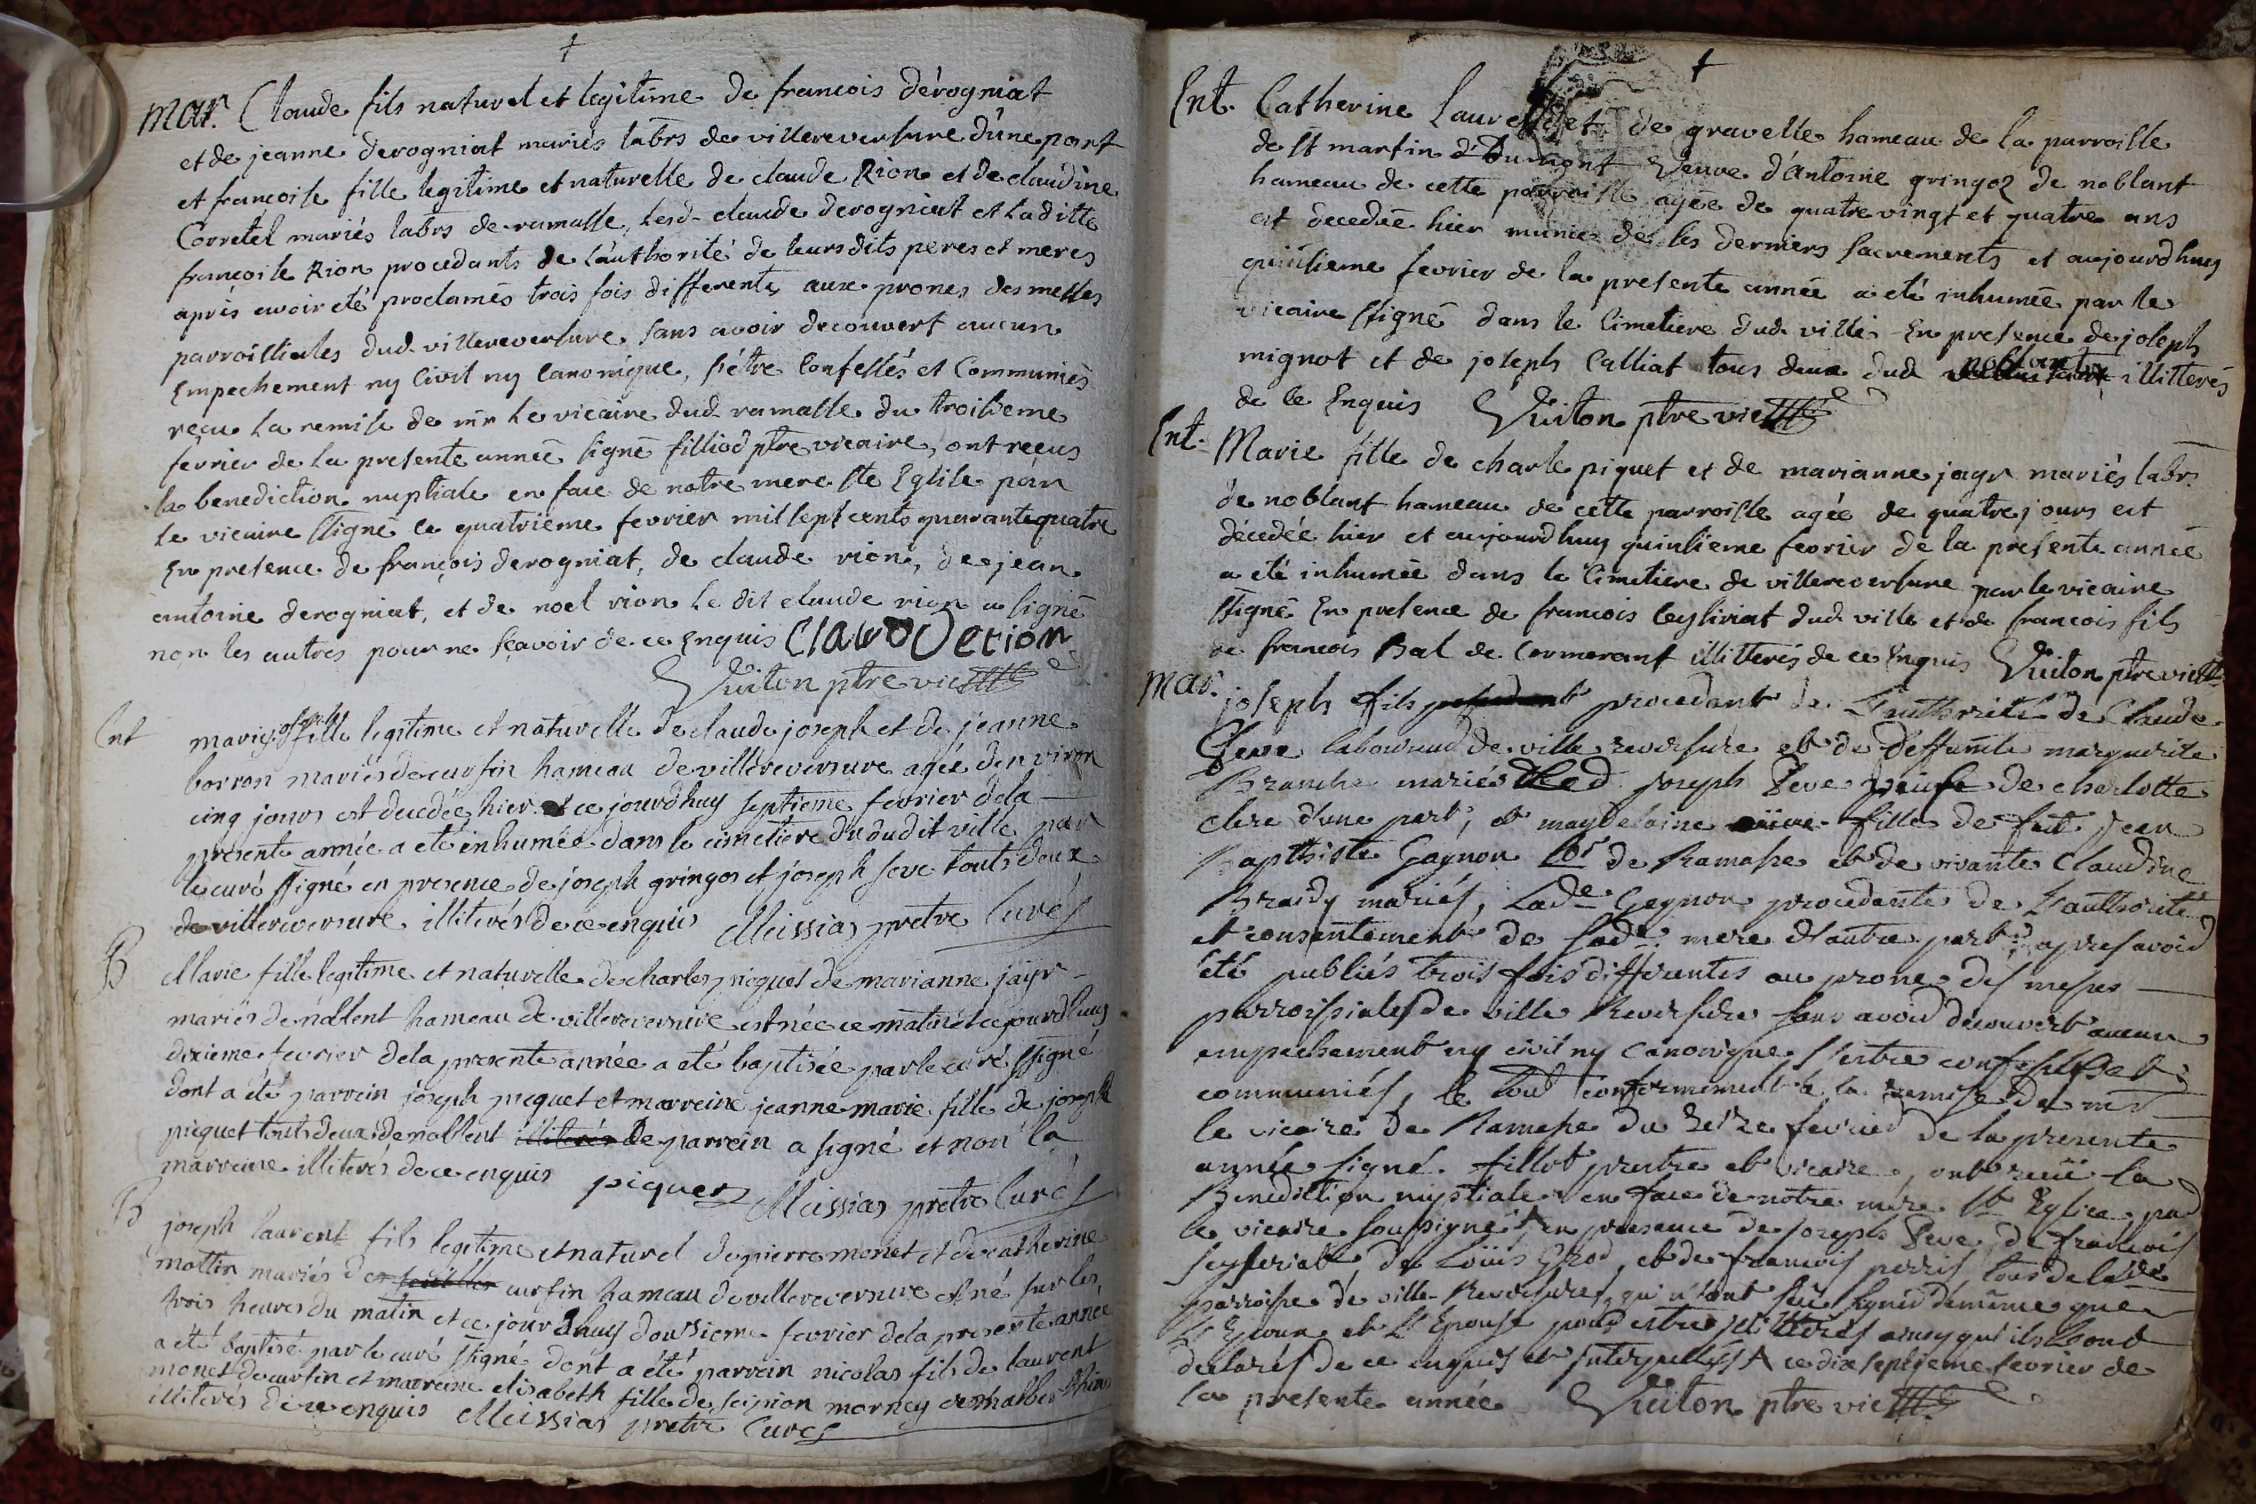 †
mar. Claude fils naturel et legitime de francois dérogniat
et de jeanne derogniat mariés labrs de villereversure d'une part
et francoise fille legitime et naturelle de claude Rion et de claudine
Corretel mariés labrs de ramasse, lesd. claude derogniat et laditte
francoise Rion procedants de l'authorité de leursdits peres et meres
aprés avoir eté proclamés trois fois differents aux prones des messes
parroissiales dud. villereversure sans avoir decouvert aucun
Empechement ny Civil ny Canonique, s'étre Confessés et Communiés
recu la remise de mr Le vicaire dud ramasse du troisieme
fevrier de la presente année signé filliod ptre vicaire, ont recus
la benediction nuptiale en face de notre mere Ste Eglise par
Le vicaire ssigné ce quatriéme fevrier mil sept cents quarante quatre
En presence de françois derogniat, de claude rion, de jean
antoine derogniat, et de noel rion Le dit claude rion a signé
non les autres pour ne sçavoir de ce Enquis Clauderion
Vuiton ptre vic
Ent marie joseph fille legitime et naturelle de claude joseph et de jeanne
borron mariés de curfin hameau de villereversure agée d'environ
cinq jours est decedée hier et ce jourdhuy septieme fevrier de la
presente année a eté inhumée dans le cimetiere du dudit ville par
le curé ssigné en presence de joseph gringos et joseph seve touts deux
de villereversure illiterés de ce enquis Meissias pretre Curé
B Marie fille legitime et naturelle de charles picquet de marianne jayr
mariés de noblent hameau de villereversure est née ce matin et ce jourdhuy
dixieme fevrier de la presente année a eté baptisée par le curé ssigné
dont a été parrein joseph picquet et marreine jeanne marie fille de joseph
picquet touts deux de noblent illiterés Le parrein a signé et non la
marreine illiterés de ce enquis piquet Meissias pretre Curé
B joseph laurent fils legitime et naturel de pierre monet et de catherine
mottin mariés de curfin hameau de villereversure est né sur les
trois heures du matin et ce jourdhuy douzieme fevrier de la presente année
a été baptisé par le curé ssigné dont a été parrein nicolas fils de laurent
monet de curfin et marreine elisabeth fille de morney
illiterés de ce enquis Meissias pretre Curé
†
Ent. Catherine de gravelle hameau de la parroisse
de St martin Dumont Veuve d'Antoine gringoz de noblant
hameau de cette parroisse agée de quatre vingt et quatre ans
est decedée hier munie de ses derniers sacrements et aujourdhuy
quinsieme fevrier de la presente année a eté inhumée par le
vicaire ssigné dans le Cimetiere dud ville En presence de joseph
mignot et de joseph Calliat tous deux dud noblant illiterés
de ce Enquis Vuiton ptre vic
Ent. Marie fille de charle piquet et de marianne jayr mariés labrs
de noblant hameau de cette parroisse agée de quatre jours est
décedée hier et aujourdhuy quinsieme fevrier de la presente année
a eté inhumée dans le Cimetiere de villereversure par le vicaire
ssigné En presence de francois ceyseriat dud ville et de francois fils
de francois Bal de Cormorant illiterés de ce Enquis Vuiton ptre vic
mar. joseph fils procedant de L'authorité de Claude
Seve laboureur de ville reversure et de deffunte marguerite
Branche mariés Led joseph Seve veuf de charlotte
clerc d'une part, et magdelaine fille de feu Jean
Bapthiste Gagnon Lbr de Ramasse et de vivante Claudine
Braidy mariés, Lade Gagnon procedante de L'authorité
et consentement de sade mere d'autre part apres avoir
été publiés trois fois differentes au prone des messes
parroissiales de ville Reversure sans avoir decouvert aucun
empechement ny civil ny canonique s'estre confessés et
communiés, le tout conformement à la remise de mr
le vicaire de Ramasse du seize fevrier de la presente
année signé fillod prestre et vicaire, ont recu la
Benediction nuptiale en face de notre mere Ste Eglise par
le vicaire soussigné en presence de joseph Seve, de francois
seyseriat, de Loüis Grod, et de francois perris tous de lade
parroisse de ville Reversure, qui n'ont sçu signer de meme que
L'Epoux et L'Epouse pour estre illiterés ainsy qu'ils l'ont
declarés de ce enquis et interpellés ce dix septieme fevrier de
la presente année Vuiton ptre vic